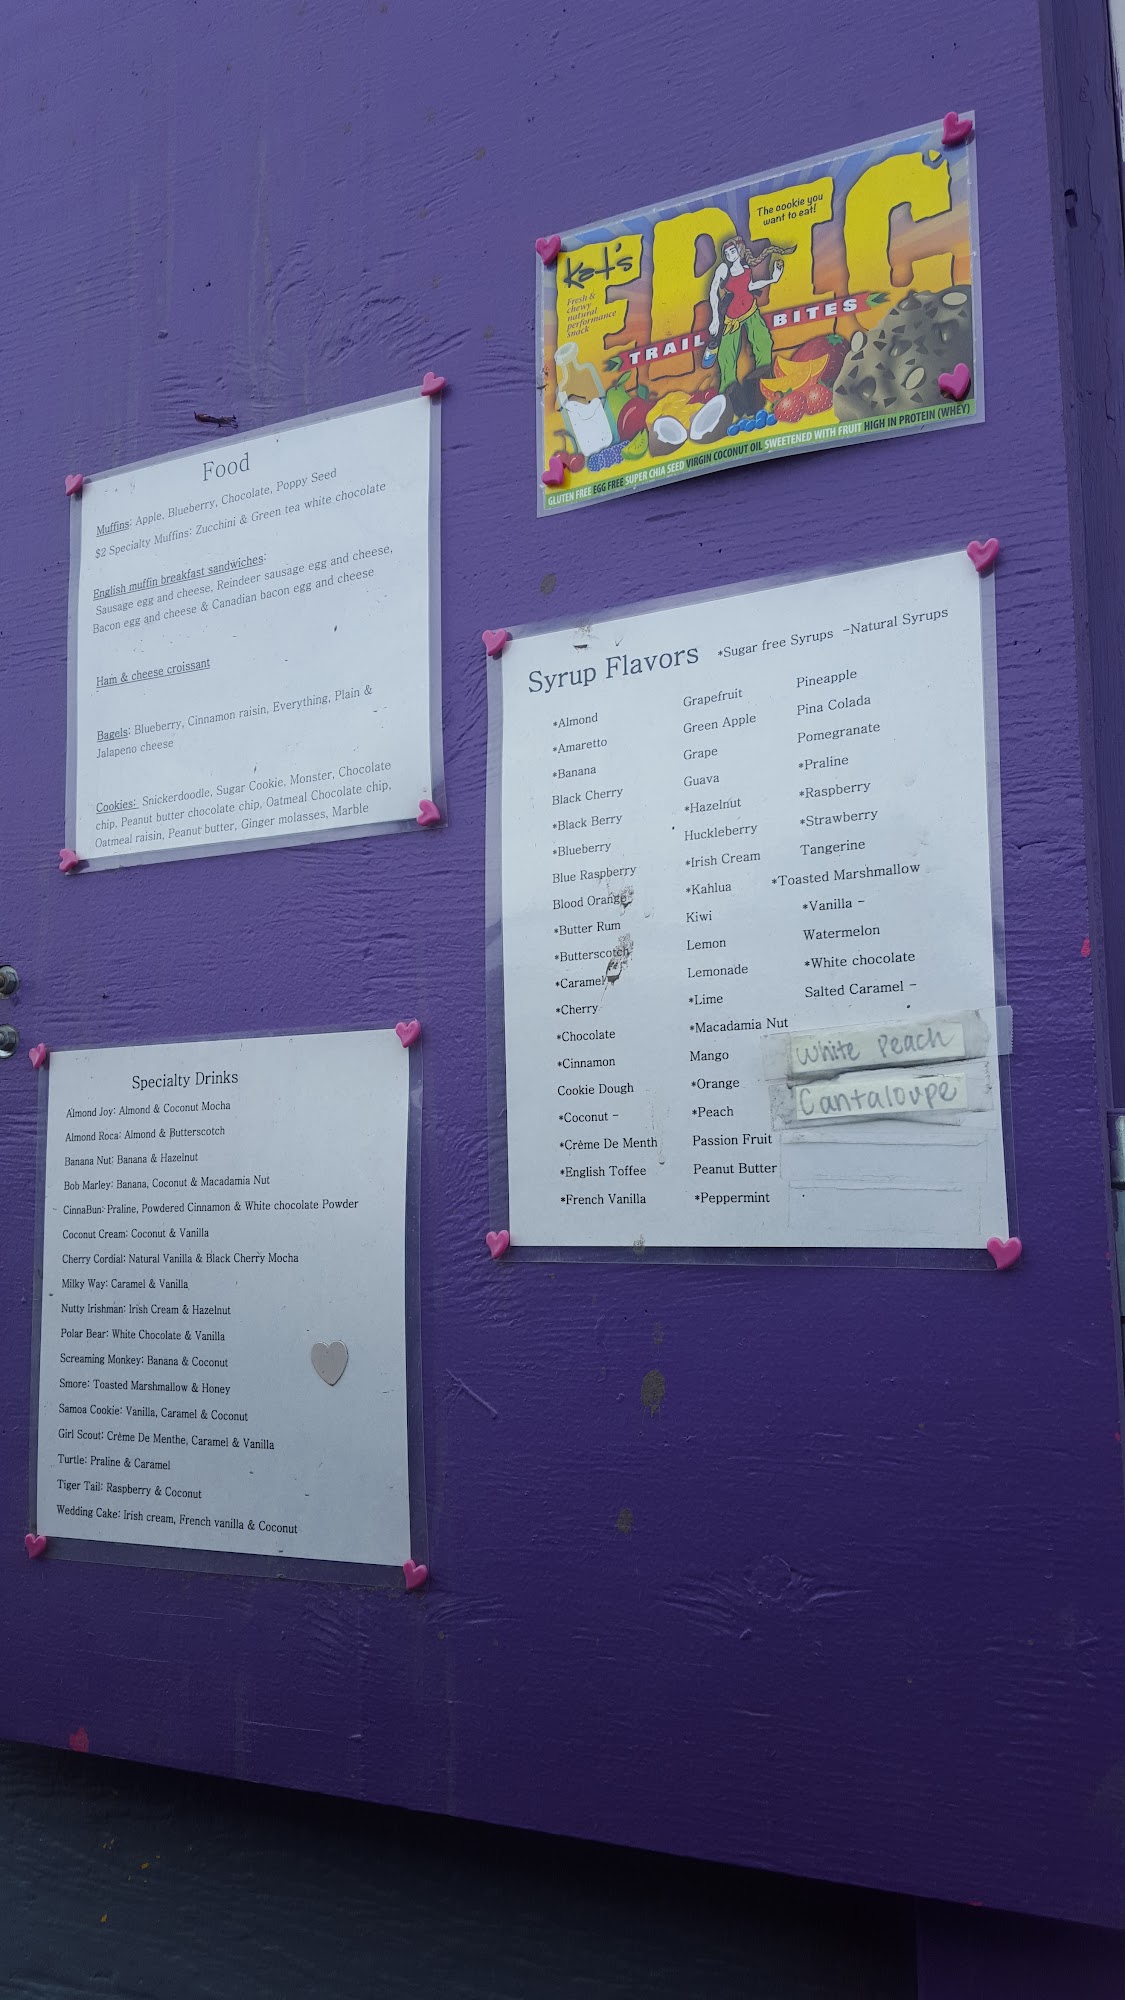 Food
Muffins: Apple, Blueberry, Chocolate, Poppy Seed
$2 Specialty Muffins: Zucchini & Green tea white chocolate
English muffin breakfast sandwiches:
Sausage egg and cheese, Reindeer sausage egg and cheese,
Bacon egg and cheese & Canadian bacon egg and cheese
Ham & cheese croissant
Bagels: Blueberry, Cinnamon raisin, Everything, Plain &
Jalapeno cheese
Cookies: Snickerdoodle, Sugar Cookie, Monster, Chocolate
chip, Peanut butter chocolate chip, Oatmeal Chocolate chip,
Oatmeal raisin, Peanut butter, Ginger molasses, Marble
The cookie you
want to eat!
Kat's
EPIC
Fresh &
chewy
natural
performance
snack
TRAIL BITES
GLUTEN FREE EGG FREE SUPER CHIA SEED VIRGIN COCONUT OIL SWEETENED WITH FRUIT HIGH IN PROTEIN (WHEY)
Syrup Flavors *Sugar free Syrups -Natural Syrups
*Almond
*Amaretto
*Banana
Black Cherry
*Black Berry
*Blueberry
Blue Raspberry
Blood Orange
*Butter Rum
*Butterscotch
*Caramel
*Cherry
*Chocolate
*Cinnamon
Cookie Dough
*Coconut -
*Crème De Menth
*English Toffee
*French Vanilla
Grapefruit
Green Apple
Grape
Guava
*Hazelnut
Huckleberry
*Irish Cream
*Kahlua
Kiwi
Lemon
Lemonade
*Lime
*Macadamia Nut
Mango
*Orange
*Peach
Passion Fruit
Peanut Butter
*Peppermint
Pineapple
Pina Colada
Pomegranate
*Praline
*Raspberry
*Strawberry
Tangerine
*Toasted Marshmallow
*Vanilla -
Watermelon
*White chocolate
Salted Caramel -
White Peach
Cantaloupe
Specialty Drinks
Almond Joy: Almond & Coconut Mocha
Almond Roca: Almond & Butterscotch
Banana Nut: Banana & Hazelnut
Bob Marley: Banana, Coconut & Macadamia Nut
CinnaBun: Praline, Powdered Cinnamon & White chocolate Powder
Coconut Cream: Coconut & Vanilla
Cherry Cordial: Natural Vanilla & Black Cherry Mocha
Milky Way: Caramel & Vanilla
Nutty Irishman: Irish Cream & Hazelnut
Polar Bear: White Chocolate & Vanilla
Screaming Monkey: Banana & Coconut
Smore: Toasted Marshmallow & Honey
Samoa Cookie: Vanilla, Caramel & Coconut
Girl Scout: Crème De Menthe, Caramel & Vanilla
Turtle: Praline & Caramel
Tiger Tail: Raspberry & Coconut
Wedding Cake: Irish cream, French vanilla & Coconut